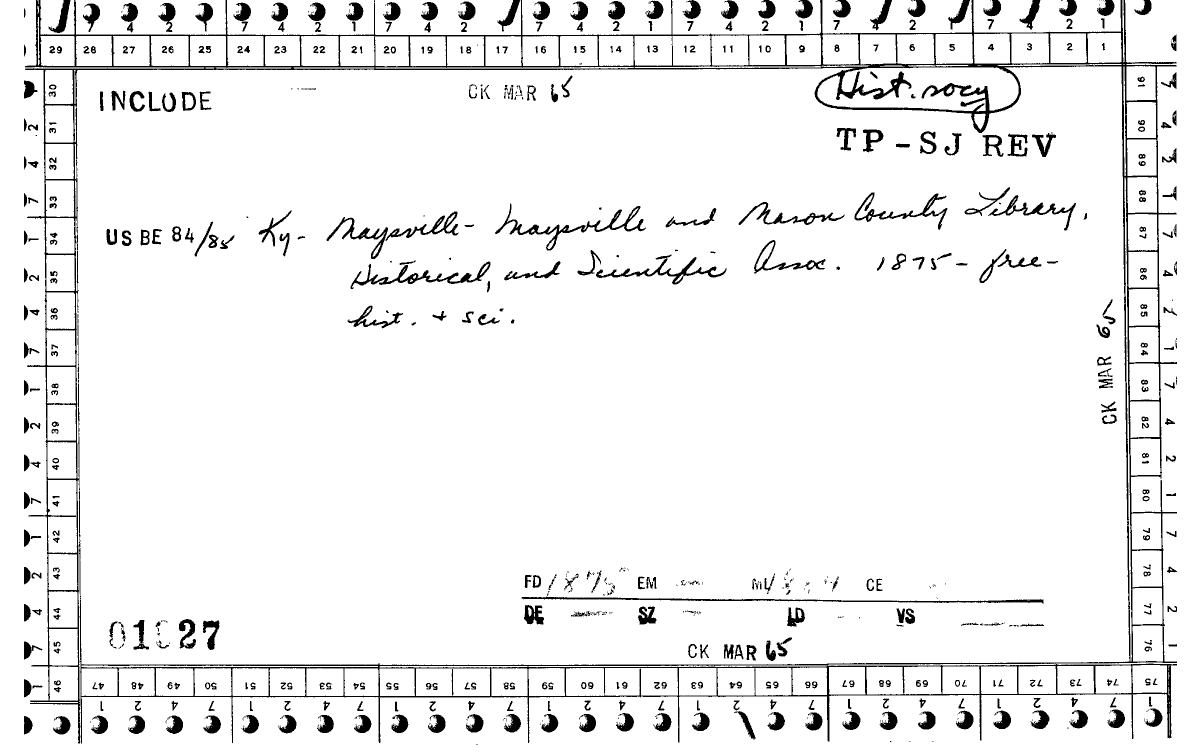 7 4 2 1 7 4 2 1 7 4 2 1 7 4 2 1 7 4 2 1 7 4 2 1 7 4 2 1
29 28 27 26 25 24 23 22 21 20 19 18 17 16 15 14 13 12 11 10 9 8 7 6 5 4 3 2 1
INCLUDE CK MAR 65 Hist. socy
TP-SJ REV
US BE 84/85 Ky- Maysville- Maysville and Mason County Library,
Historical, and Scientific Assoc. 1875- free-
hist. + sci.
CK MAR 65
FD 1875 EM ML CE
DE SZ LD VS
27
CK MAR 65
30 31 32 33 34 35 36 37 38 39 40 41 42 43 44 45 46
91 90 89 88 87 86 85 84 83 82 81 80 79 78 77 76
47 48 49 50 51 52 53 54 55 56 57 58 59 60 61 62 63 64 65 66 67 68 69 70 71 72 73 74 75
1 2 4 7 1 2 4 7 1 2 4 7 1 2 4 7 1 2 4 7 1 2 4 7 1 2 4 7 1